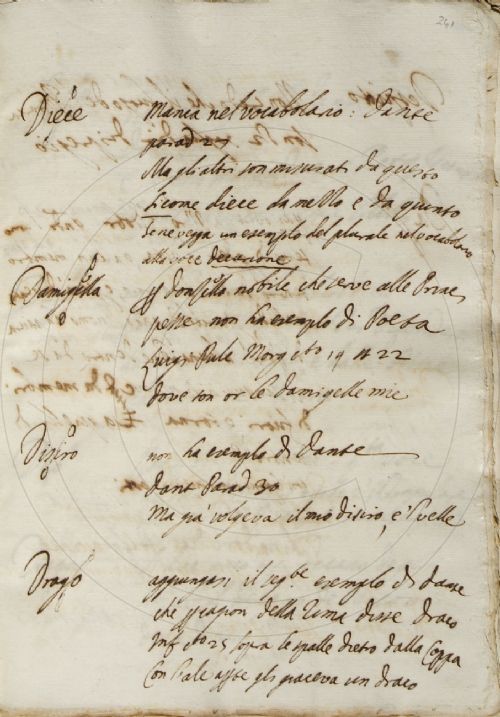 241
Diece Manca nel vocabolario: Dante
parad 27
Ma gli altri son misurati da questo
sicome diece da mezzo e da quinto
se ne vegga un esempio del plurale nel vocabolario
alla voce decurione
Damigella donzella nobile che serve alle Princi
pesse non ha esempio di Poeta
Luigi Pulc Morg cto 19 st 22
dove son or le damigelle mie
Disiro non ha esempio di Dante
Dant Parad 30
Ma già volgeva il mio disiro, e 'l velle
Drago aggiungasi il segte esempio di Dante
che della rima disse draco
Inf cto 25 sopra le spalle dietro dalla Coppa
Con l'ale apte gli giaceva un draco